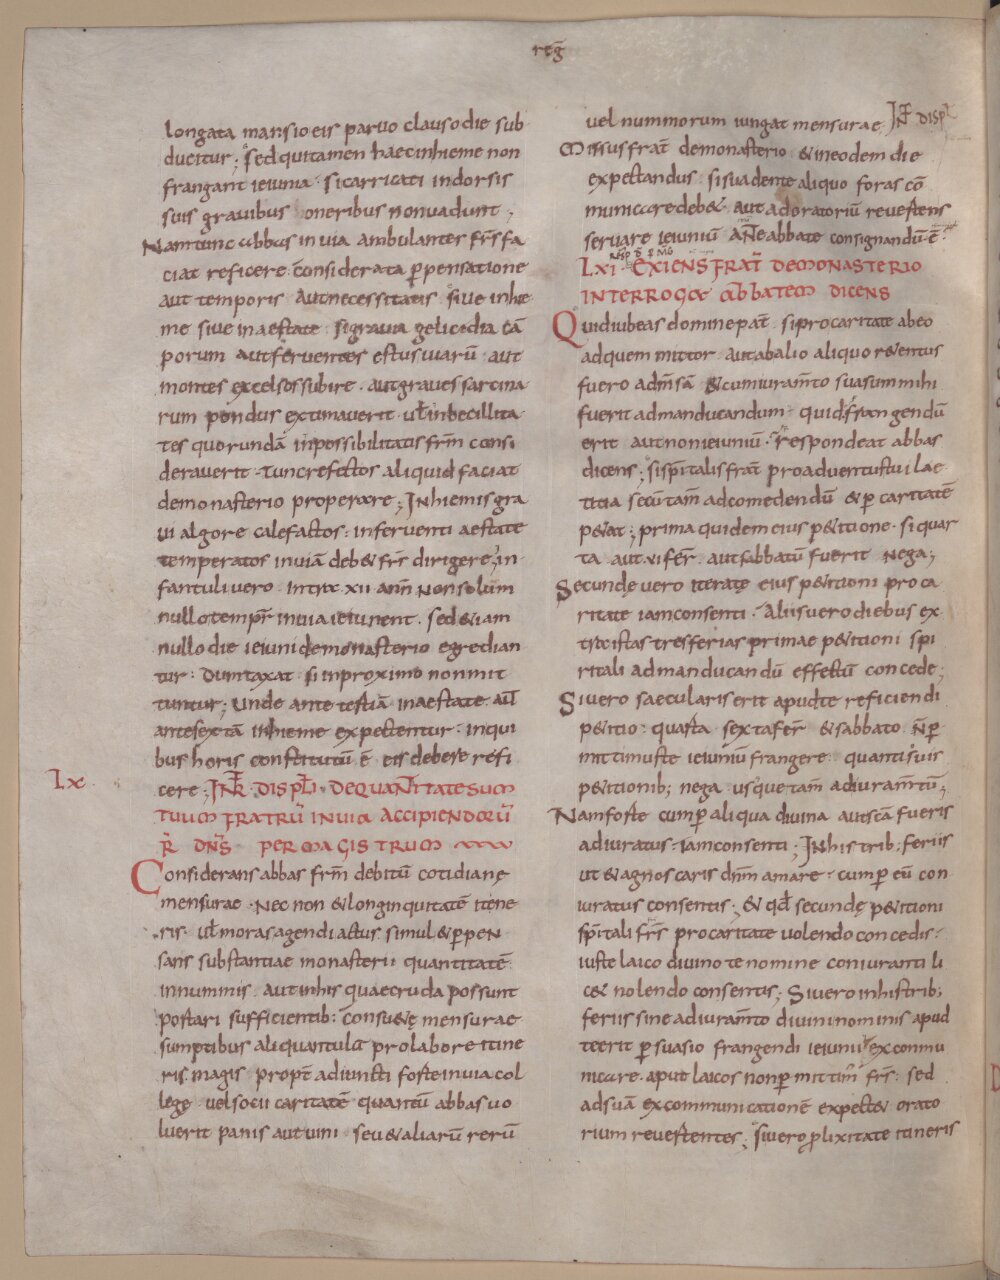 reḡ
longata mansio eis paruo clauso die sub
ducitur; Sed qui tamen haec in hieme non
frangant ieiunia· si carricati in dorsis
suis grauibus oneribus non uadunt;
Nam tunc abbas in uia ambulantes fr̄s fa
ciat reficere c̄onsiderata p̄pensatione
aut temporis aut necessitatis siue in hie
me siue in aestate· si grauia gelicidia cā
porum aut feruentes estus uiarū aut
montes excelsos subire· aut graues sarcina
rum pondus extimauerit· ul̄ inbecillita
tes quorundā inpossibilitatis fr̄m consi
derauerit· tunc refectos aliquid faciat
demonasterio properare; In hiemis gra
ui algore calefactos: in feruenti aestate
temperatos in uiā deb& fr̄s dirigere; in
fantuli uero intra xii ann̄ Non solum
nullo tempr̄ in uia ieiunent· sed &iam
nullo die ieiuni demonasterio egredian
tur· Dumtaxat si in proximo non mit
tuntur; Unde ante tertiā in aestate aul̄
ante sextā in hieme expectentur· in qui
bus horis constitutū ē eis debere refi
Lx
cere; INR̄ DISPL̄I DE QUANTITATE SUM
TUUM FRATRŪ IN UIA ACCIPIENDORŪ
R̄ DN̄S PER MAGISTRUM
Considerans abbas fr̄m debitū cotidianę
mensurae· Nec non & longinquitatē itene
ris· ul̄ moras agendi actus simul & p̄pen
sans substantiae monasterii quantitatē
in nummis aut in his quae cruda possunt
portari sufficientib: c̄onsu&ę mensurae
sumptibus aliquantulū pro labore itine
ris magis propt̄ adiuncti forte in uia col
legę uel socii caritatē quantū abbas uo
luerit panis aut uini seu & aliarū rerū
uel nummorum iungat mensurae INT̄ DISP̄
Missus frat̄ demonasterio & in eodem die
expectandus· si suadente aliquo foras cō
municare deb& aut ad oratoriū reuertens
seruare ieiuniū AN̄e abbate consignandū ē·
Resp̄ d̄
Lxi· EXIENS FRAT̄ DE MONASTERIO
INTERROGAT ABBATEM DICENS
Quid iubeas domine pat̄ si pro caritate abeo
ad quem mittor aut ab alio aliquo r&entus
fuero ad m̄sā & cum iuram̄to suasum mihi
fuerit ad manducandum· quid frangendū
erit aut non ieiuniū· Respondeat abbas
dicens; si sp̄italis frat̄ pro aduentus tui lae
titia secū tam̄ ad comedendū & p̄ caritatē
p&at; prima quidem eius p&itione· si quar
ta aut ui fer̄ aut sabbatū fuerit nega;
Secundę uero iteratę eius p&itioni pro ca
ritate iam consenti· Aliis uero diebus ex
tra istas tres ferias primae p&itioni spi
ritali ad manducandū effectū concede;
Si uero saecularis erit apud te reficiendi
p&itio quarta sexta fer̄ & sabbato n̄ p̄
mittimus te ieiuniū frangere quantisuis
p&itionib; nega usque tam̄ adiuram̄tū;
Nam forte cum p̄ aliqua diuina aut scā fueris
adiuratus· iam consenti; In his trib; feriis
ut & agnoscaris dn̄m amare· cum p̄ eū con
iuratus consentis; & qd̄ secundę p&itioni
sp̄itali fr̄s pro caritate uolendo concedis·
iuste laico diuino te nomine coniuranti li
c& nolendo consentis; Si uero in his trib;
feriis sine adiuram̄to diuini nominis apud
te erit p̄suasio frangendi ieiunii excommu
nicare· aput laicos non p̄mittim̄ fr̄s· sed
ad suā excommunicationē expect& orato
rium reuertentes; si uero p̄lixitate itineris